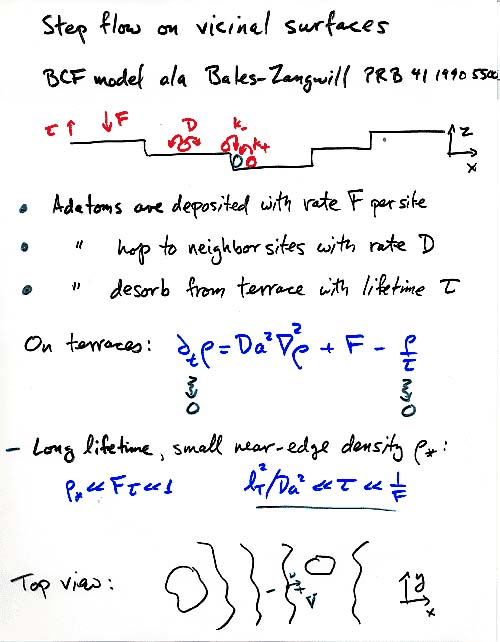 Step flow on vicinal surfaces
BCF model ala Bales-Zangwill PRB 41 1990 5500
τ ↑ ↓ F D k- k+ z
x
• Adatoms are deposited with rate F per site
• " hop to neighbor sites with rate D
• " desorb from terrace with lifetime τ
On terraces: ∂tρ = Da²∇²ρ + F - ρ/τ
0 0
- Long lifetime, small near-edge density ρ*:
ρ* << Fτ << 1 l_T²/Da² << τ << 1/F
Top view: - + v y
x